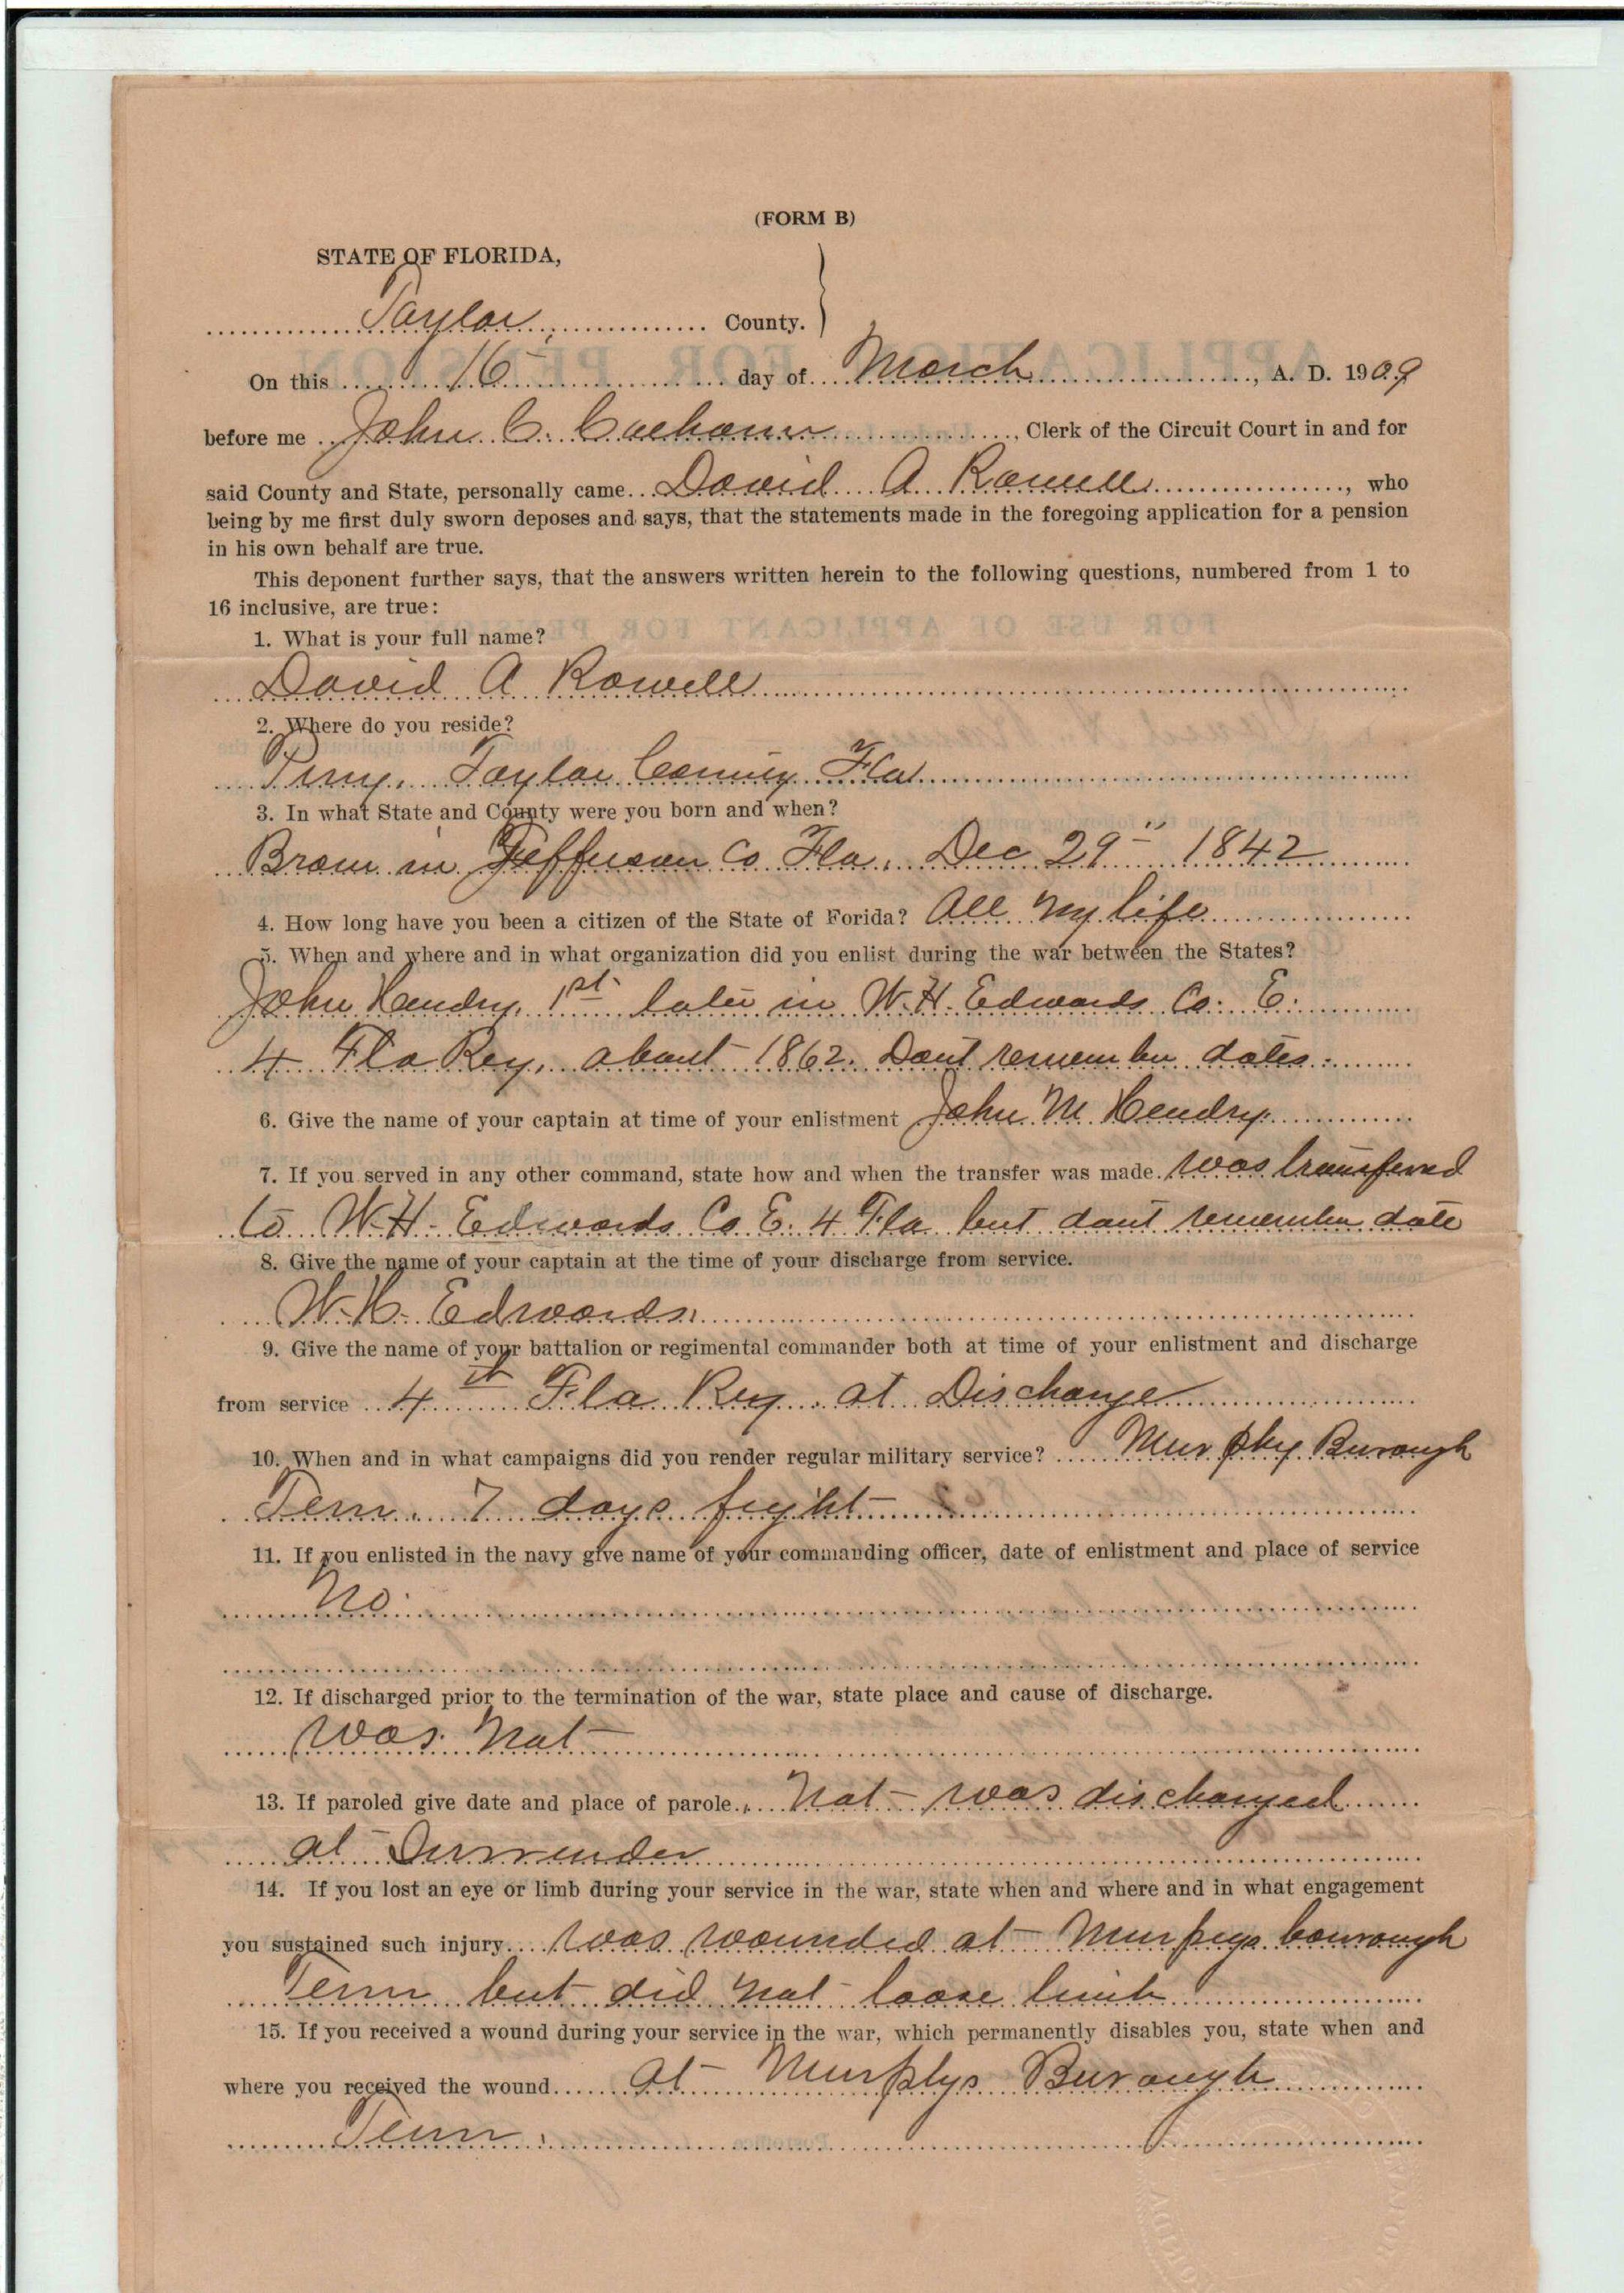 (FORM B)
STATE OF FLORIDA,
Taylor County.
On this 16 day of March, A. D. 1909
before me John C. Calhoun, Clerk of the Circuit Court in and for
said County and State, personally came David A Rowell, who
being by me first duly sworn deposes and says, that the statements made in the foregoing application for a pension
in his own behalf are true.
This deponent further says, that the answers written herein to the following questions, numbered from 1 to
16 inclusive, are true:
1. What is your full name?
David A Rowell
2. Where do you reside?
Perry, Taylor County Fla
3. In what State and County were you born and when?
Brom in Jefferson Co Fla. Dec 29" 1842
4. How long have you been a citizen of the State of Forida? All my life
5. When and where and in what organization did you enlist during the war between the States?
John Hendry, 1st. later in W.H. Edwards Co. E.
4 Fla Reg. about 1862. Dont remember dates.
6. Give the name of your captain at time of your enlistment John M Hendry.
7. If you served in any other command, state how and when the transfer was made. was transfered
to W.H. Edwards Co E. 4 Fla but dont remember date
8. Give the name of your captain at the time of your discharge from service.
W.H. Edwards.
9. Give the name of your battalion or regimental commander both at time of your enlistment and discharge
from service 4th Fla Reg. at Discharge
10. When and in what campaigns did you render regular military service? Murphy Burough
Tenn. 7 days fight
11. If you enlisted in the navy give name of your commanding officer, date of enlistment and place of service
No.
12. If discharged prior to the termination of the war, state place and cause of discharge.
was not
13. If paroled give date and place of parole. Not was discharged
at Surrender
14. If you lost an eye or limb during your service in the war, state when and where and in what engagement
you sustained such injury. was wounded at
Tenn but did not loose limb
15. If you received a wound during your service in the war, which permanently disables you, state when and
where you received the wound. At Murphys Burough
Tenn.